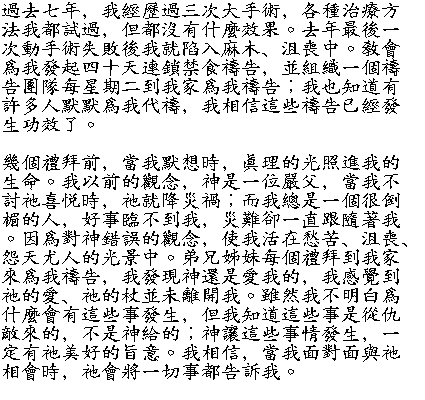 過去七年，我經歷過三次大手術，各種治療方
法我都試過，但都沒有什麼效果。去年最後一
次動手術失敗後我就陷入麻木、沮喪中。教會
為我發起四十天連鎖禁食禱告，並組織一個禱
告團隊每星期二到我家為我禱告；我也知道有
許多人默默為我代禱，我相信這些禱告已經發
生功效了。
幾個禮拜前，當我默想時，真理的光照進我的
生命。我以前的觀念，神是一位嚴父，當我不
討祂喜悅時，祂就降災禍；而我總是一個很倒
楣的人，好事臨不到我，災難卻一直跟隨著我
。因為對神錯誤的觀念，使我活在愁苦、沮喪、
怨天尤人的光景中。弟兄姊妹每個禮拜到我家
來為我禱告，我發現神還是愛我的，我感覺到
祂的愛、祂的杖並未離開我。雖然我不明白為
什麼會有這些事發生，但我知道這些事是從仇
敵來的，不是神給的；神讓這些事情發生，一
定有祂美好的旨意。我相信，當我面對面與祂
相會時，祂會將一切事都告訴我。